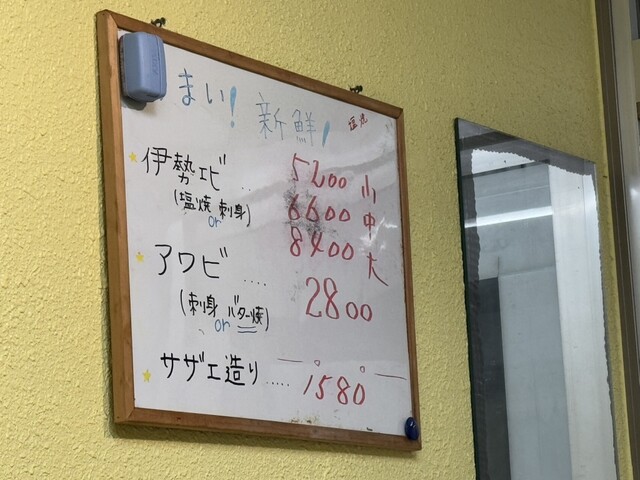 まい! 新鮮!
塩焼
伊勢エビ ... 5200 小
(塩焼 or 刺身) 6600 中
8400 大
アワビ .... 2800
(刺身 or バター焼)
サザエ造り ..... 1580